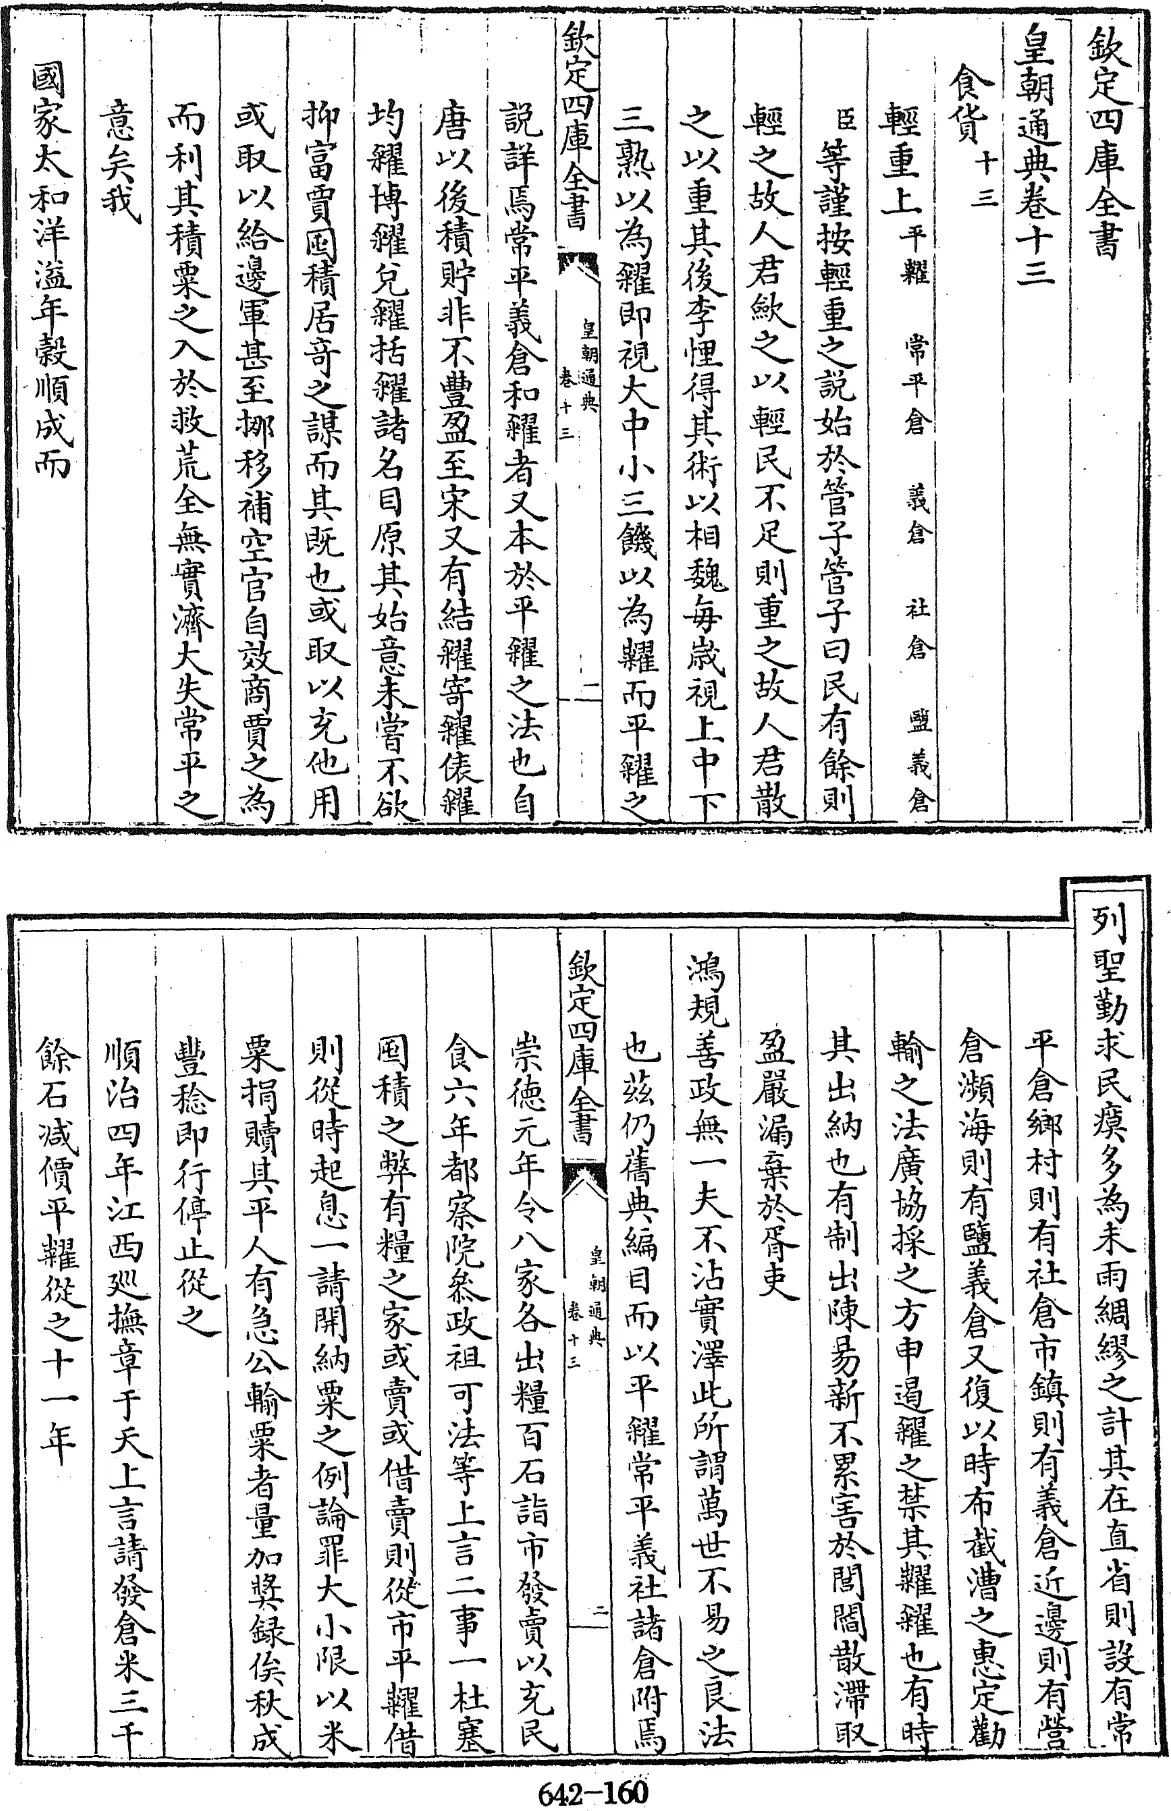 欽定四庫全書
皇朝通典卷十三
食貨十三
輕重上平糶 常平倉 義倉 社倉 鹽義倉
臣等謹按輕重之説始於管子管子曰民有餘則
輕之故人君歛之以輕民不足則重之故人君散
之以重其後李悝得其術以相魏每嵗視上中下
三熟以為糴即視大中小三饑以為糶而平糴之
欽定四庫全書
皇朝通典
卷十三
一
説詳焉常平義倉和糴者又本於平糴之法也自
唐以後積貯非不豐盈至宋又有結糴寄糴俵糴
均糴博糴兌糴括糴諸名目原其始意未嘗不欲
抑富賈囤積居竒之謀而其既也或取以充他用
或取以給邊軍甚至挪移補空官自效商賈之為
而利其積粟之入於救荒全無實濟大失常平之
意矣我
國家太和洋溢年穀順成而
列聖勤求民瘼多為未雨綢繆之計其在直省則設有常
平倉鄉村則有社倉市鎮則有義倉近邊則有營
倉瀕海則有鹽義倉又復以時布截漕之惠定勸
輸之法廣協採之方申遏糴之禁其糶糴也有時
其出納也有制出陳易新不累害於閭閻散滯取
盈嚴漏棄於胥吏
鴻規善政無一夫不沾實澤此所謂萬世不易之良法
也茲仍舊典編目而以平糴常平義社諸倉附焉
欽定四庫全書
皇朝通典
卷十三
二
崇徳元年令八家各出糧百石詣市發賣以充民
食六年都察院叅政祖可法等上言二事一杜塞
囤積之弊有糧之家或賣或借賣則從市平糶借
則從時起息一請開納粟之例論罪大小限以米
粟捐贖其平人有急公輸粟者量加獎録俟秋成
豐稔即行停止從之
順治四年江西廵撫章于天上言請發倉米三千
餘石減價平糶從之十一年
642-160